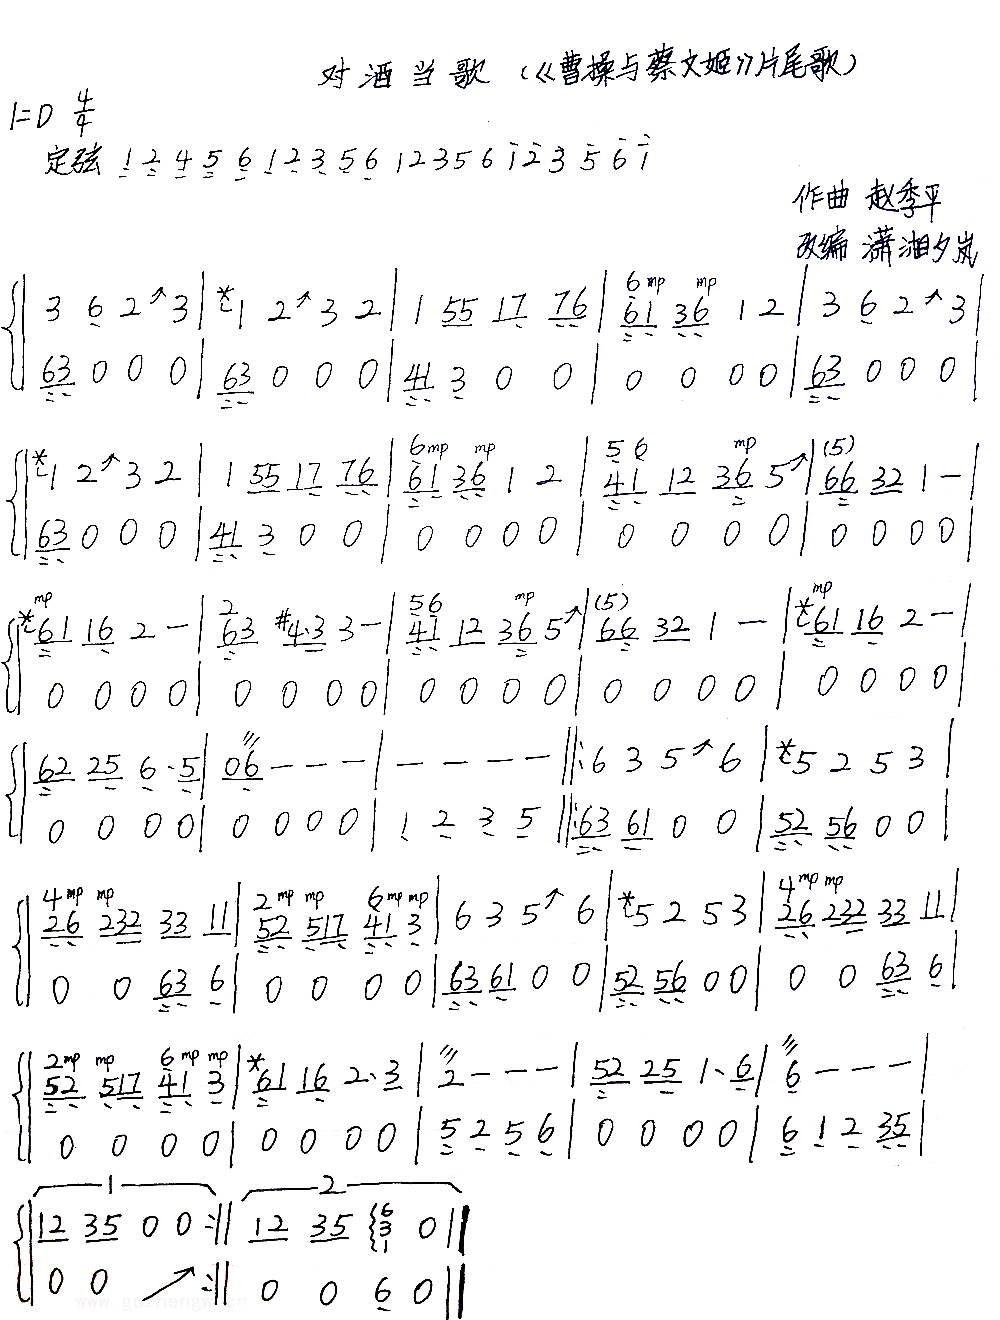 对酒当歌（《曹操与蔡文姬》片尾歌）
1=D 4/4
定弦 1 2 4 5 6 1 2 3 5 6 1 2 3 5 6 1 2 3 5 6 1
作曲 赵季平
改编 潇湘夕岚
3 6 2 3 | 1 2 3 2 | 1 55 17 76 | 6 mp mp 61 36 1 2 | 3 6 2 3 |
63 0 0 0 | 63 0 0 0 | 41 3 0 0 | 0 0 0 0 | 63 0 0 0 |
1 2 3 2 | 1 55 17 76 | 6 mp mp 61 36 1 2 | 5 6 mp 41 12 36 5 | (5) 66 32 1 — |
63 0 0 0 | 41 3 0 0 | 0 0 0 0 | 0 0 0 0 | 0 0 0 0 |
mp 61 16 2 — | 2 63 #4·3 3 — | 56 mp 41 12 36 5 | (5) 66 32 1 — | mp 61 16 2 — |
0 0 0 0 | 0 0 0 0 | 0 0 0 0 | 0 0 0 0 | 0 0 0 0 |
62 25 6·5 | 06 — — — | — — — — ‖: 6 3 5 6 | 5 2 5 3 |
0 0 0 0 | 0 0 0 0 | 1 2 3 5 ‖: 63 61 0 0 | 52 56 0 0 |
4 mp mp 26 232 33 11 | 2 mp mp 6 mp mp 52 517 41 3 | 6 3 5 6 | 5 2 5 3 | 4 mp mp 26 232 33 11 |
0 0 63 6 | 0 0 0 0 | 63 61 0 0 | 52 56 0 0 | 0 0 63 6 |
2 mp mp 6 mp mp 52 517 41 3 | 61 16 2·3 | 2 — — — | 52 25 1·6 | 6 — — — |
0 0 0 0 | 0 0 0 0 | 5 2 5 6 | 0 0 0 0 | 6 1 2 35 |
1 2
12 35 0 0 :‖ 12 35 6 3 1 0 ‖
0 0 :‖ 0 0 6 0 ‖